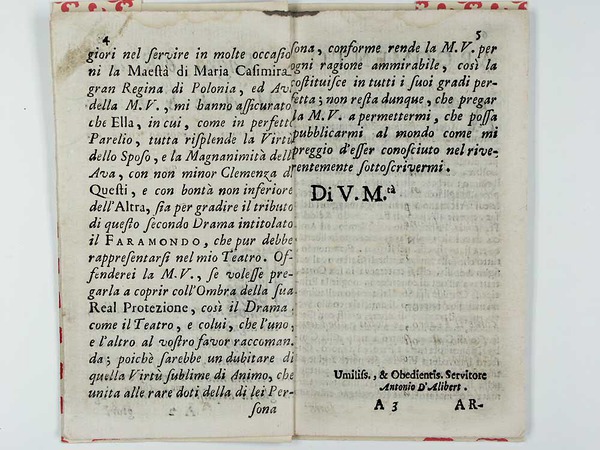 4
giori nel servire in molte occasio
ni la Maestà di Maria Casimira
gran Regina di Polonia, ed Av
della M. V., mi hanno assicurato
che Ella, in cui, come in perfett
Parelio, tutta risplende la Virtù
dello Sposo, e la Magnanimità dell
Ava, con non minor Clemenza di
Questi, e con bontà non inferiore
dell'Altra, sia per gradire il tributo
di questo secondo Drama intitolato
il FARAMONDO, che pur debbe
rappresentarsi nel mio Teatro. Of-
fenderei la M. V., se volesse pre-
garla a coprir coll'Ombra della sua
Real Protezione, così il Drama,
come il Teatro, e colui, che l'uno,
e l'altro al vostro favor raccoman.
da; poichè sarebbe un dubitare di
quella Virtù sublime di Animo, che
unita alle rare doti della di lei Per-
sona
5
sona, conforme rende la M. V. per
ogni ragione ammirabile, così la
costituisce in tutti i suoi gradi per-
fetta; non resta dunque, che pregar
la M. V. a permettermi, che possa
pubblicarmi al mondo come mi
preggio d'esser conosciuto nel rive-
rentemente sottoscrivermi.
Di V. M.tà
Umiliss., & Obedientis. Servitore
Antonio D'Alibert.
A 3 AR-